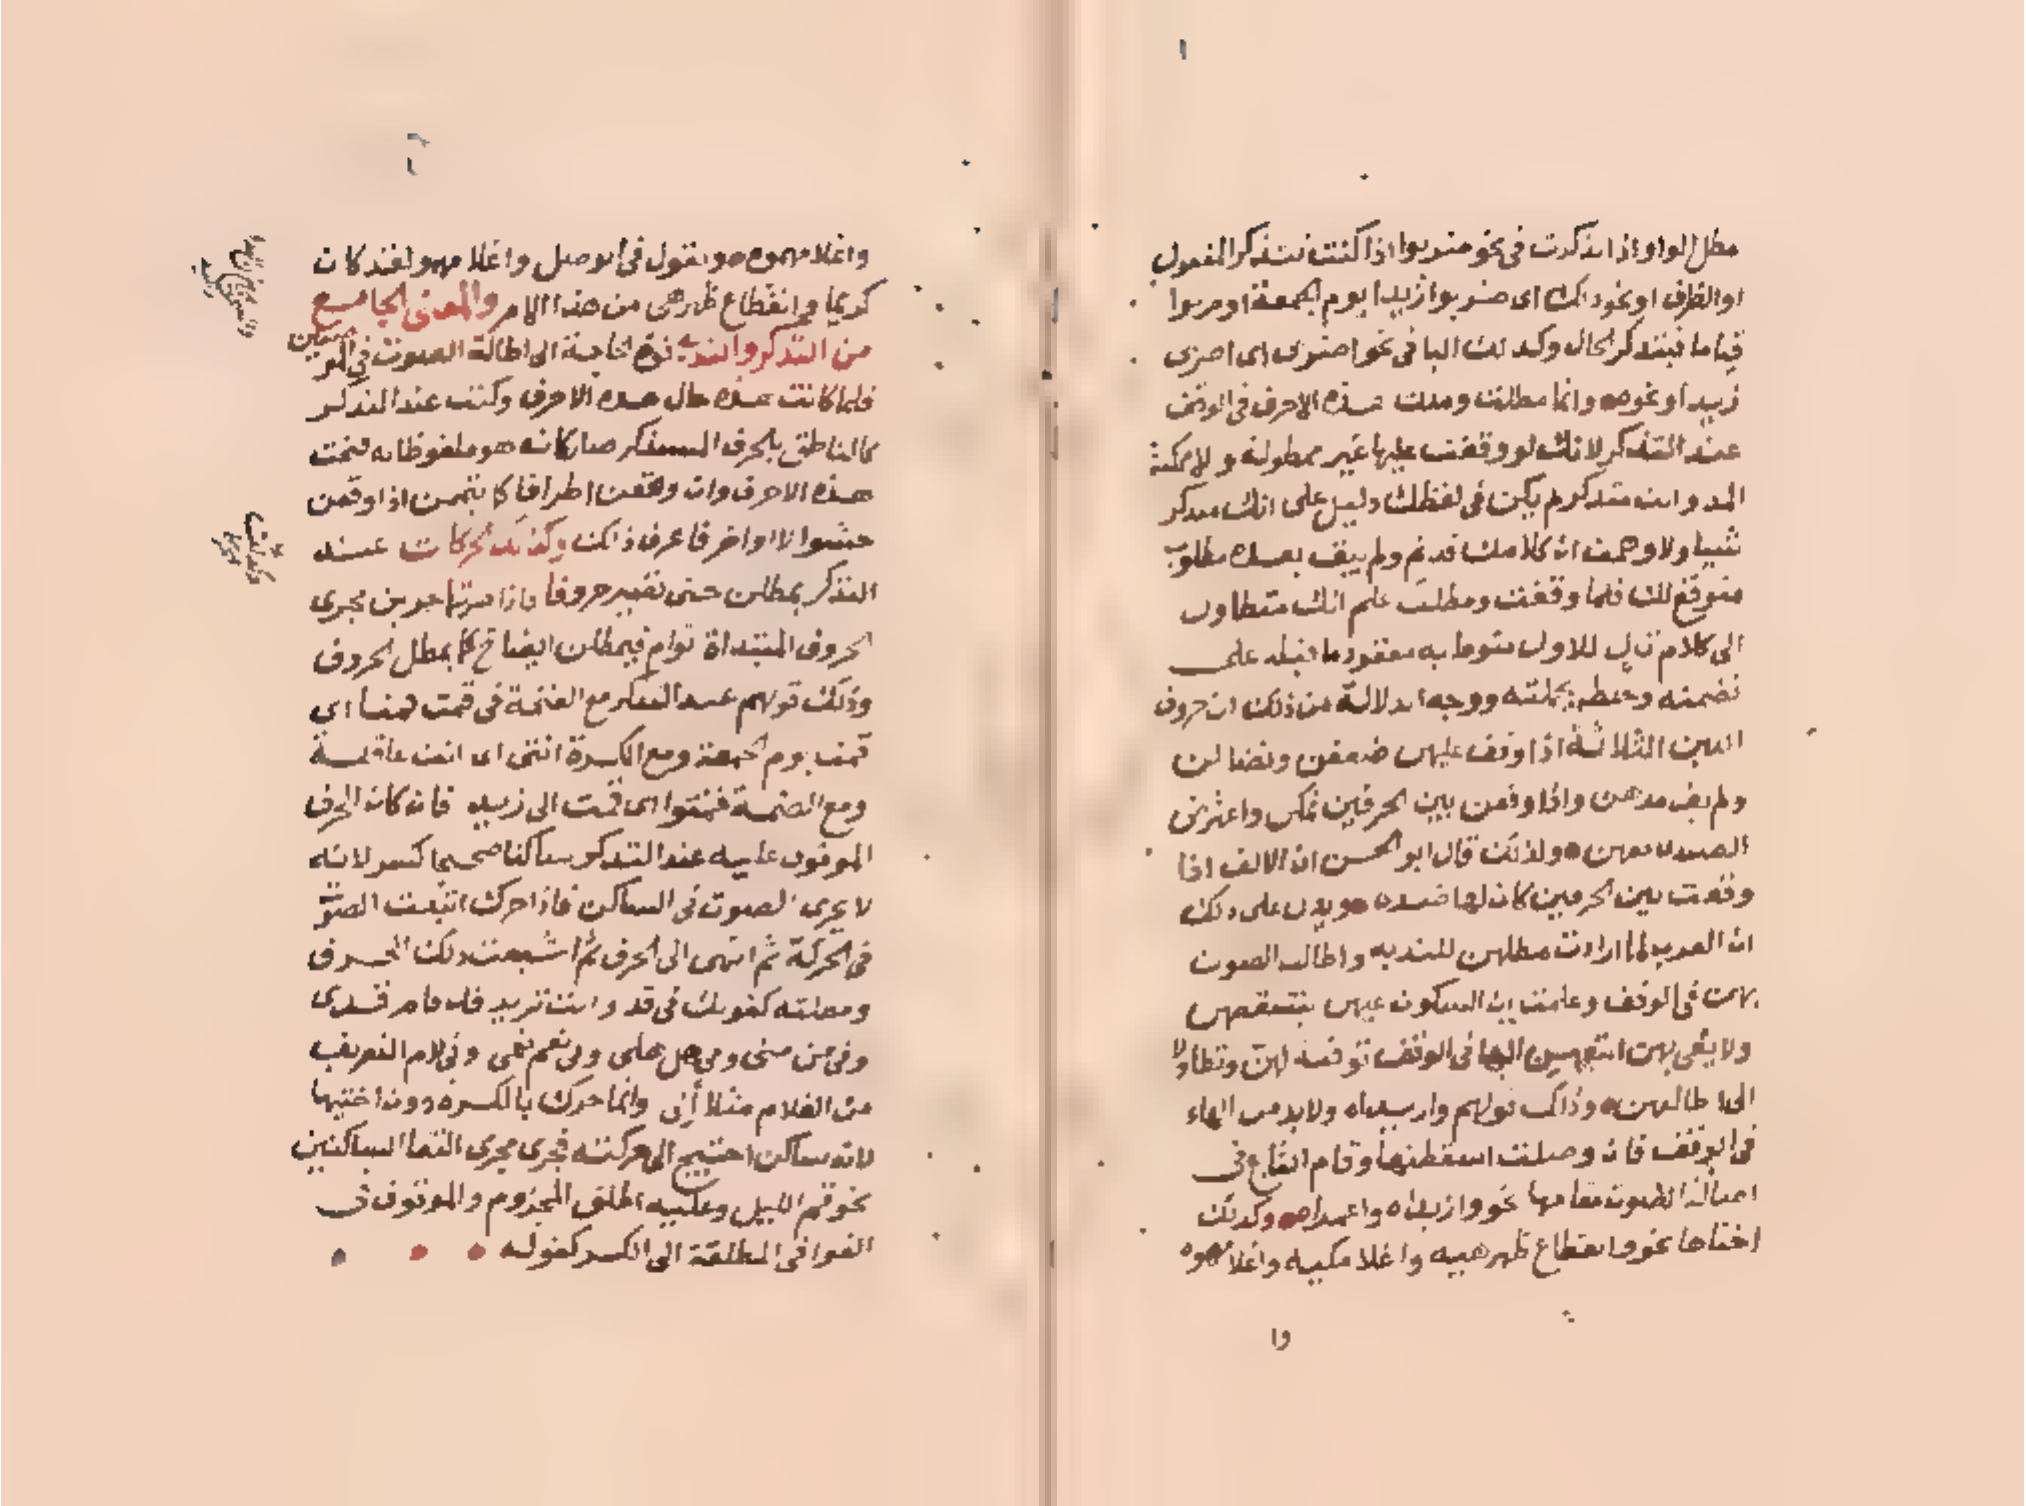 مطل الواو اذا تذكرت في نحو ضربوا اذا كنت تتذكر المفعول
او الظرف او نحو ذلك اى ضربوا زيدا يوم الجمعة او ضربوا
قياما فتتذكر الحال وكذلك اليا في نحو اضربى اى اضربى
زيدا ونحوه وانما مطلت ومدت هذه الاحرف في الوقف
عند التذكر لانك لو وقفت عليها غير ممطولة ولا ممكنة
المد وانت متذكر لم يكن في لفظك دليل على انك متذكر
شيا ولاوهمت ان كلامك قد تم ولم يبق بعده مطلوب
متوقع لك فلما وقفت ومطلت علم انك متطاول
الى كلام تال للاول منوط به معقود ما قبله على
تضمنه وخلطه بجملته ووجه الدلالة من ذلك ان حروف
اللين الثلاثة اذا وقف عليهن ضعفن وتضالن
ولم يف مدهن واذا وقعن بين الحرفين تمكن واعترض
الصدى معهن ولذلك قال ابو الحسن ان الالف اذا
وقعت بين الحرفين كان لها صدى ويدل على ذلك
ان العرب لما ارادت مطلهن للندبه واطالة الصوت
بهن في الوقف وعلمت ان السكون عليهن ينتقصهن
ولا يفي بهن اتبعهن الها في الوقف توفية لهن وتطاولا
الى اطالتهن وذلك قولهم وازيداه ولا بد من الهاء
في الوقف فان وصلت اسقطتها وقام التابع في
اطالة الصوت مقامها نحو وازيداه واعمراه وكذلك
اختاها نحو وانقطاع ظهرهيه واغلامكيه واغلامهوه
وا
واغلامهموه وتقول في الوصل واغلامهمو لقد كان
كريما وانقطاع ظهرهى من هذا الامر والمعنى الجامع
من التذكر والندبه قوة الحاجة الى اطالة الصوت في الموضعين
فلما كانت هذه حال هذه الاحرف وكنت عند التذكر
كالناطق بالحرف المستذكر صار كانه هو ملفوظا به فتمت
هذه الاحرف وان وقعن اطرافا كما يتممن اذا وقعن
حشوا لا اواخر فاعرف ذلك وكذلك الحركات عند
التذكر يمطلن حتى تصير حروفا فاذا صرنها جرين مجرى
الحروف المبتداة توام فيمطلن ايضا ح كما يمطل الحروف
وذلك قولهم عند التذكر مع الفتحة في قمت قمتا اي
قمت يوم الجمعة ومع الكسرة انتى اى انت عاقلة
ومع الضمة قمتوا اى قمت الى زيد فان كان الحرف
الموقوف عليه عند التذكر ساكنا صحيحا كسر لانه
لا يجرى الصوت في الساكن فاذا حرك انبعث الصوت
في الحركة ثم انتهى الى الحرف ثم اشبعت ذلك الحرف
ومطلته كقولك في قد وانت تريد قد قام قدى
وفي من منى وفي هل هلى وفي نعم نعمى وفي لام التعريف
من الغلام مثلا ألى وانما حرك بالكسره دون اختيها
لانه ساكن احتيج الى حركته فجرى مجرى التقا الساكنين
نحو قم الليل وعليه اطلق المجزوم والموقوف في
القوافي المطلقة الى الكسر كقوله